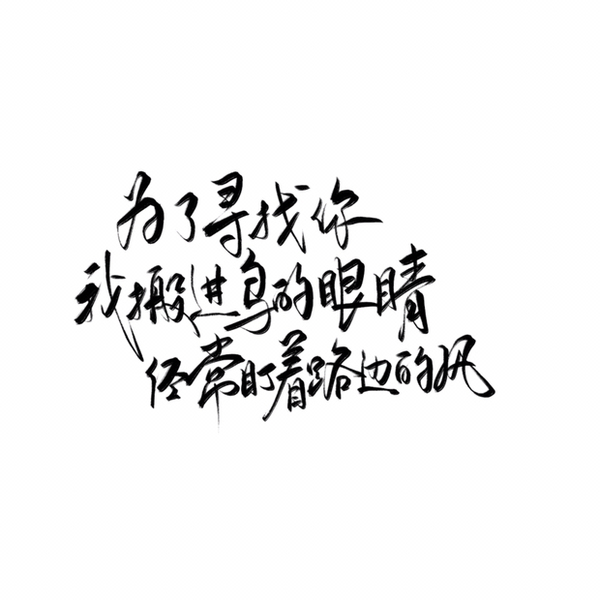 为了寻找你
我搬进鸟的眼睛
经常盯着路边的风